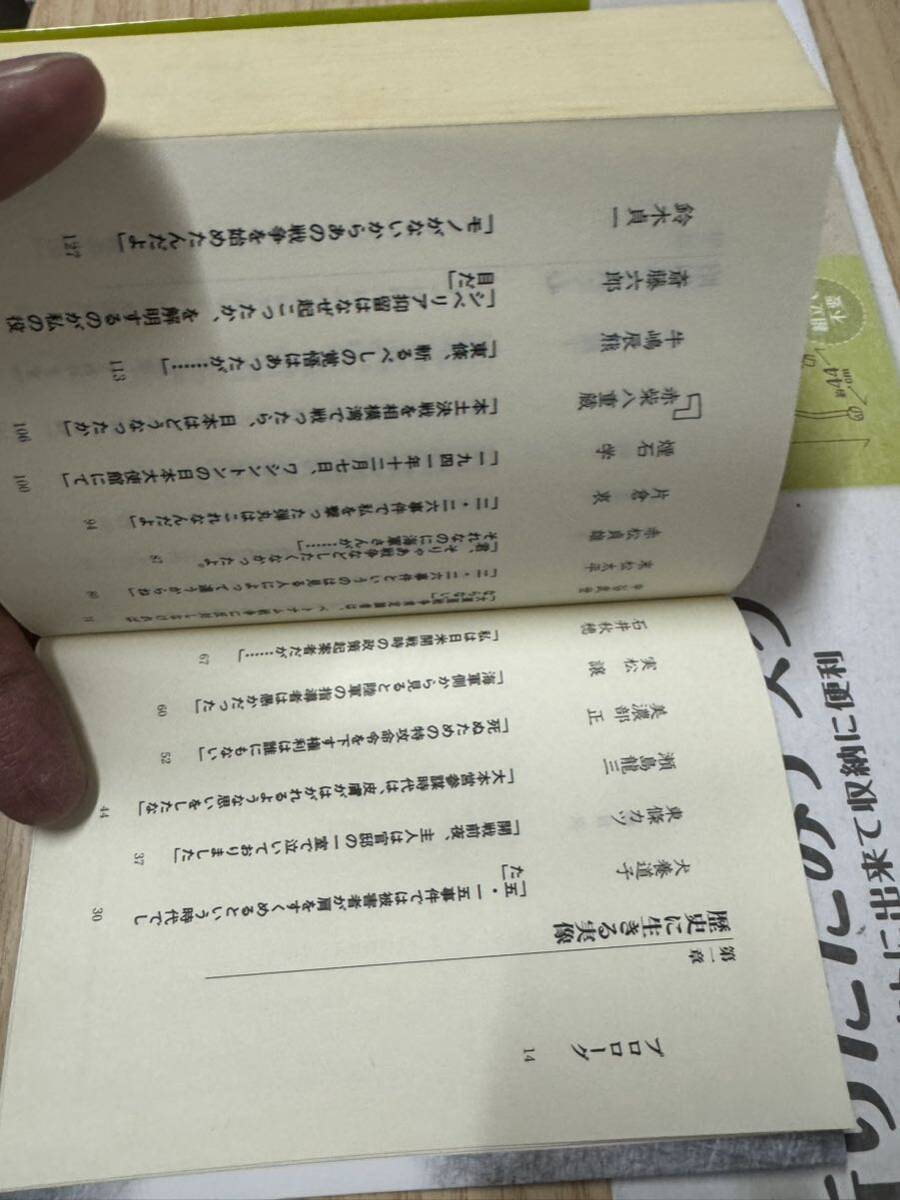 プロローグ 14
第一章
歴史に生きる実像
犬養道子
「五・一五事件では被害者が肩をすくめるという時代でし
た」 30
東條カツ
「開戦前夜、主人は官邸の一室で泣いておりました」 37
瀬島龍三
「大本営参謀時代は、皮膚がはがれるような思いをしたな」 44
美濃部正
「死ぬための特攻命令を下す権利は誰にもない」 52
実松譲
「海軍側から見ると陸軍の指導者は愚かだった」 60
石井秋穂
「私は日米開戦時の政策起案者だが……」 67
末松太平
「二・二六事件というのは見る人によって違うからね」 80
赤松貞雄
「君、そりゃあ戦争などしたくなかったよ。
それなのに海軍さんが……」 87
片倉衷
「二・二六事件で私を撃った弾丸はこれなんだよ」 94
煙石学
「一九四一年十二月七日、ワシントンの日本大使館にて」 100
赤柴八重蔵
「本土決戦を相模湾で戦ったら、日本はどうなったか」 106
牛嶋辰熊
「東條、斬るべしの覚悟はあったが……」 113
斎藤六郎
「シベリア抑留はなぜ起こったか、を解明するのが私の役
目だ」
鈴木貞一
「モノがないからあの戦争を始めたんだよ」 127
組立て
不要
約44cm
に出来て収納に便利